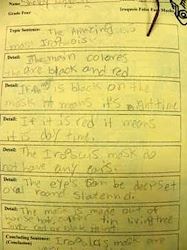 Name
Grade Four
Iroquois False Face Mask
Topic Sentence: The Amazing
most Iroquois
Detail: The main colores
are black and red
Detail: If it is black on the
mask it means it's nighttime
Detail: If it is red it means
it is day time.
Detail: The Iroquois mask do
not have any ears.
Detail: The eye's can be deepset
or round
Detail: The mask is made out of
living tree
Concluding Sentence:
(Conclusion) Iroquois mask are